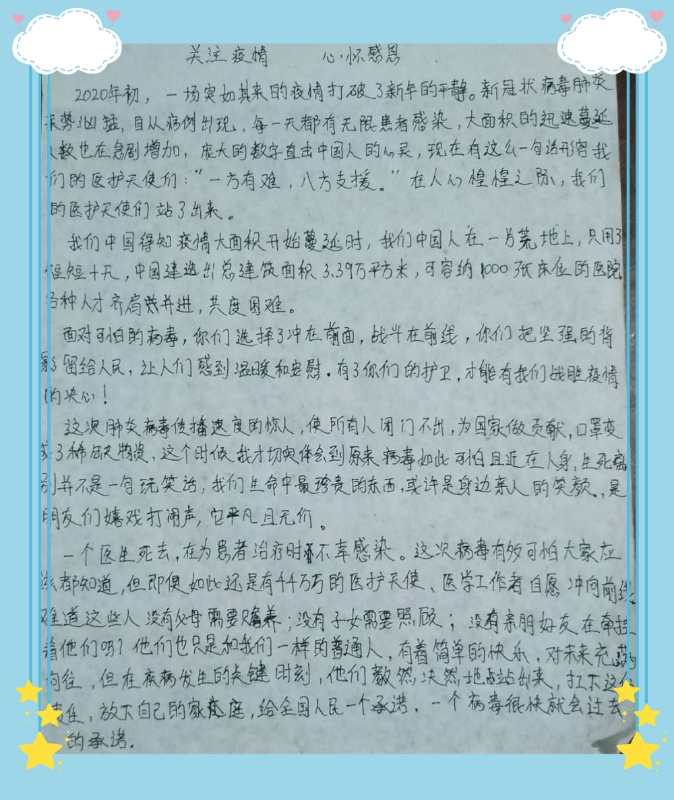 关注疫情 心怀感恩
2020年初，一场突如其来的疫情打破了新年的平静。新冠状病毒肺炎
来势汹猛，自从病例出现，每一天都有无限患者感染，大面积的迅速蔓延
人数也在急剧增加，庞大的数字直击中国人的心灵，现在有这么一句话形容我
们的医护天使们："一方有难，八方支援。"在人心惶惶之际，我们
的医护天使们站了出来。
我们中国得知疫情大面积开始蔓延时，我们中国人在一片荒地上，只用了
短短十天，中国建造出总建筑面积3.39万平方米，可容纳1000张床位的医院
各种人才齐肩并进，共度困难。
面对可怕的病毒，你们选择了冲在前面，战斗在前线，你们把坚强的背
影留给人民，让人们感到温暖和安慰．有了你们的护卫，才能有我们战胜疫情
的决心！
这次肺炎病毒传播速度的惊人，使所有人闭门不出，为国家做贡献，口罩变
成了稀缺物资，这个时候我才切实体会到原来病毒如此可怕且近在人身，生死离
别并不是一句玩笑话，我们生命中最珍贵的东西，或许是身边亲人的笑貌，是
朋友们嬉戏打闹声，它平凡且无价。
一个医生死去，在为患者治疗时不幸感染。这次病毒有多可怕大家应
该都知道，但即便如此还是有44万的医护天使、医学工作者自愿冲向前线，
难道这些人没有父母需要赡养；没有子女需要照顾；没有亲朋好友在牵挂
着他们吗？他们也只是和我们一样的普通人，有着简单的快乐，对未来充满
向往，但在疾病发生的关键时刻，他们毅然，决然地站出来，扛下这份
责任，放下自己的家庭，给全国人民一个承诺．一个病毒很快就会过去
的承诺．